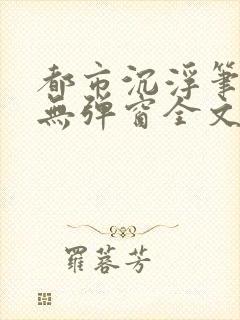 都市沉浮筆
無彈窗全文
羅蓉芳